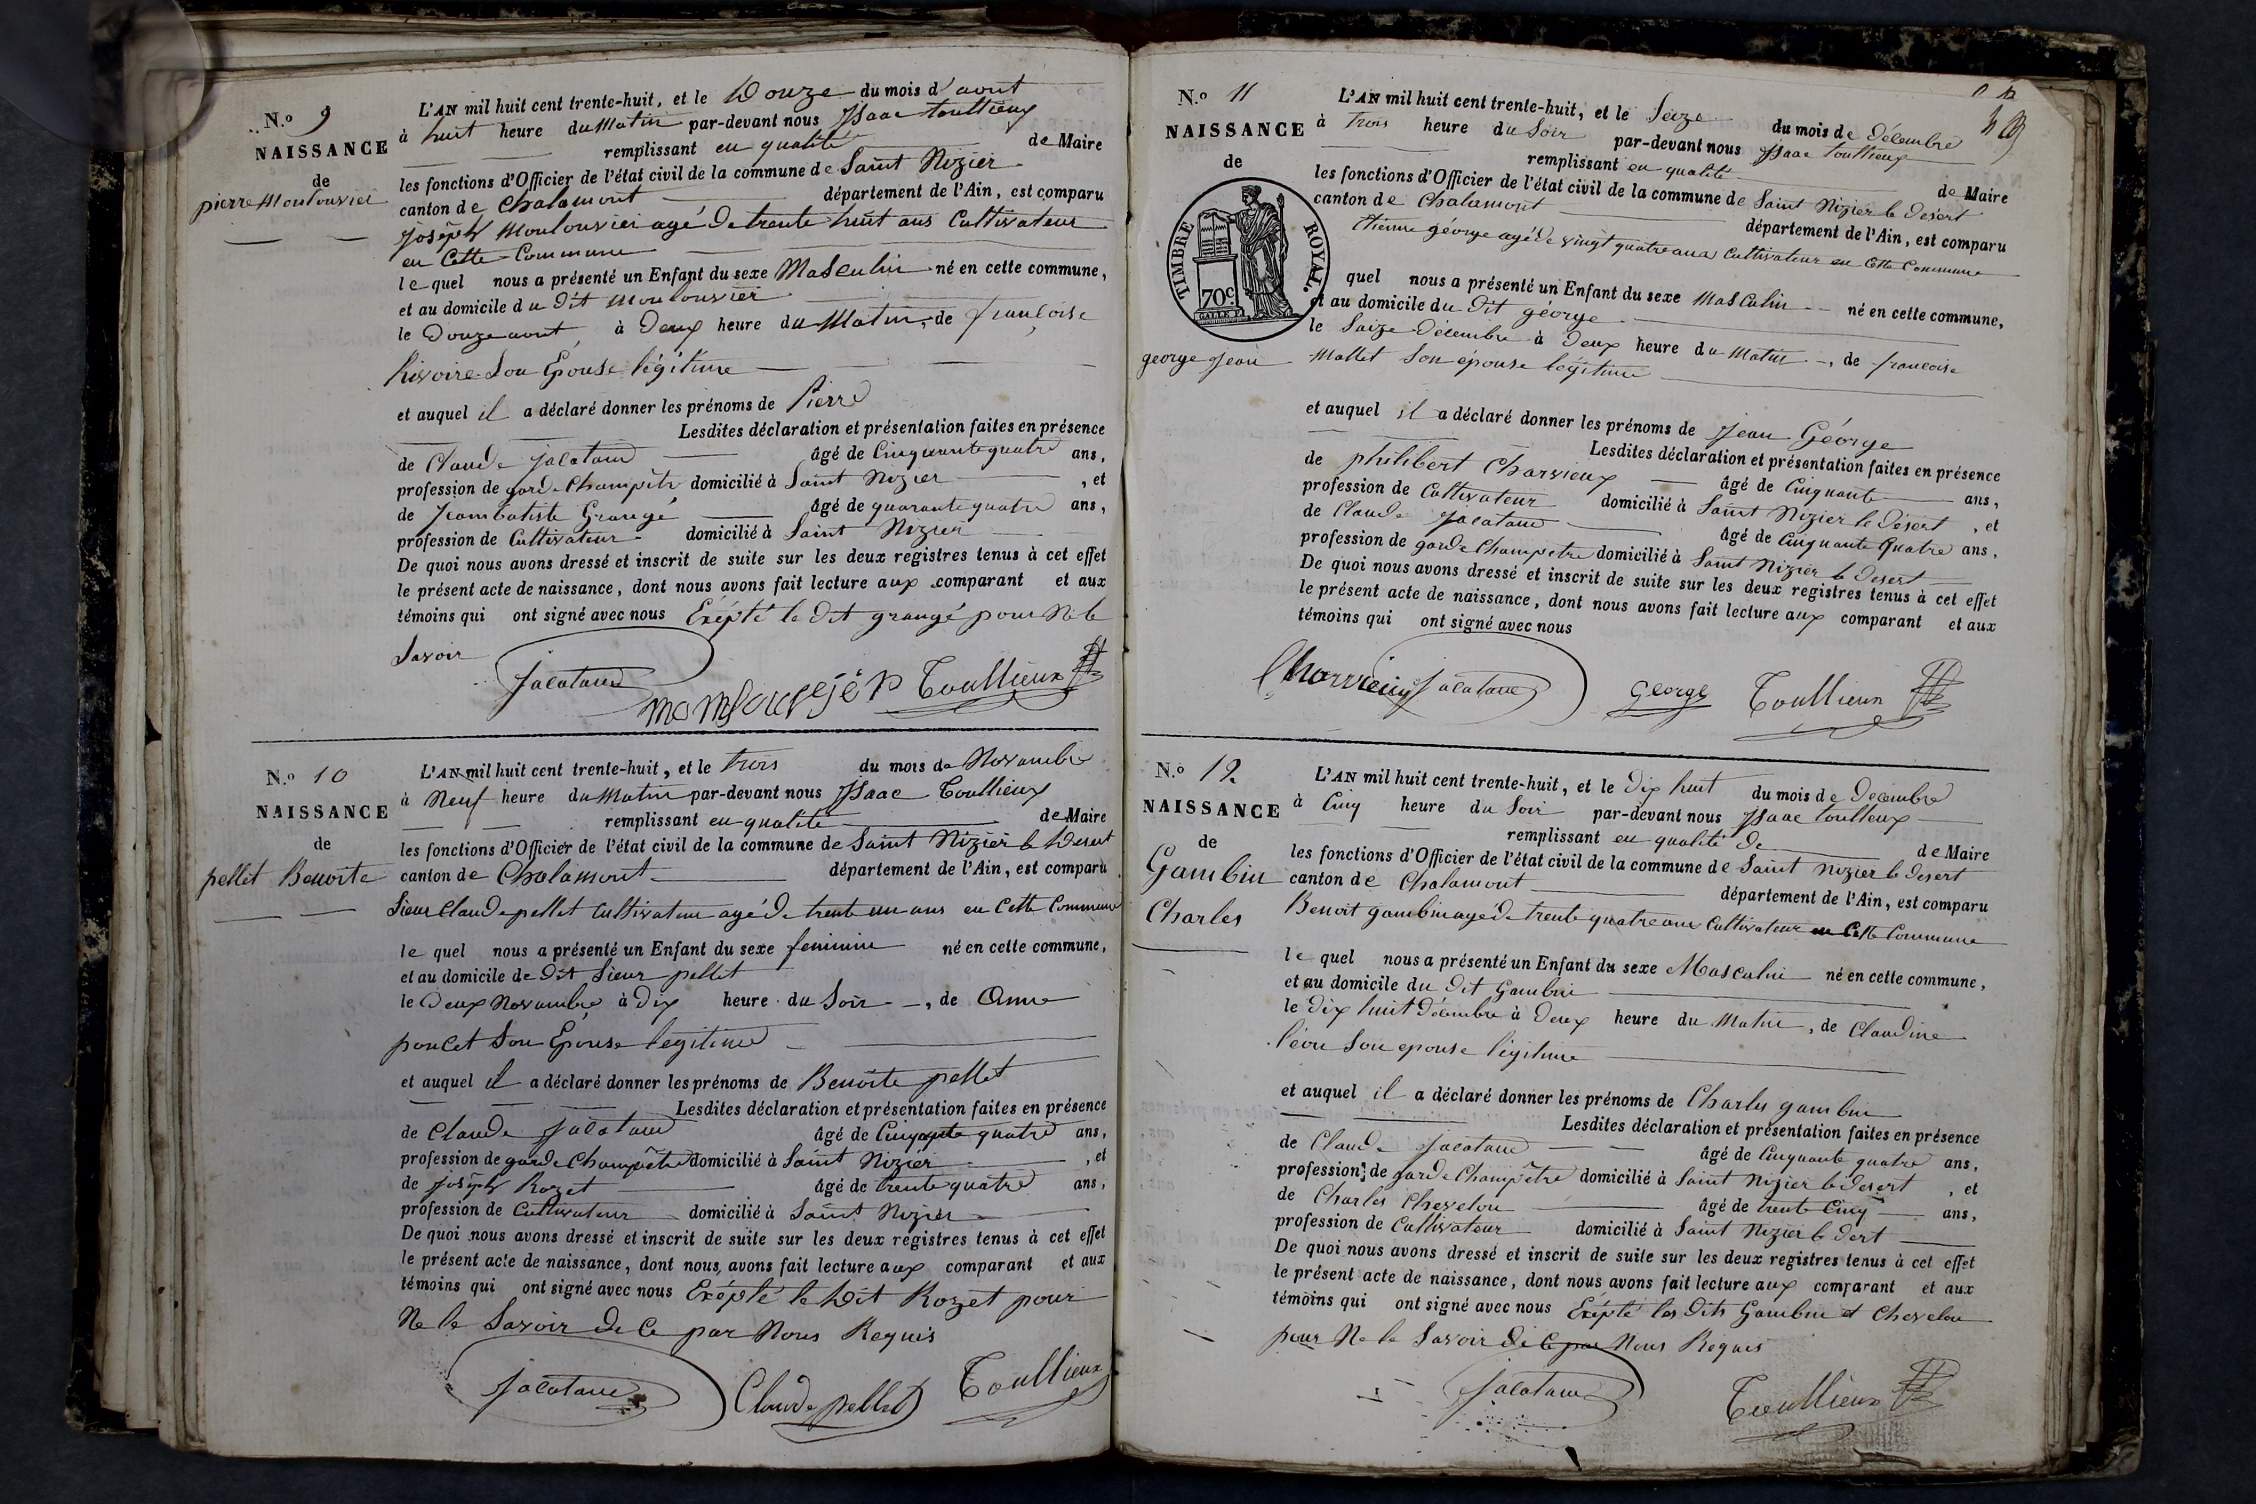 N.o 9
NAISSANCE
de
pierre Monlouvier
L'AN mil huit cent trente-huit, et le Douze du mois d'aout
à huit heure du Matin par-devant nous Isaac toullieux
remplissant en qualité de Maire
les fonctions d'Officier de l'état civil de la commune de Saint Nizier
canton de Chalamont département de l'Ain, est comparu
Joseph Monlouvier agé de trente huit ans Cultivateur
en Cette Commune
le quel nous a présenté un Enfant du sexe Masculin né en cette commune,
et au domicile du dit Monlouvier
le Douze aout, à Deux heure du Matin, de françoise
hivoire Son Épouse légitime
et auquel il a déclaré donner les prénoms de Pierre
Lesdites déclaration et présentation faites en présence
de Claude Jacataud âgé de Cinquante quatre ans,
profession de garde Champêtre domicilié à Saint Nizier, et
de Jeanbatiste Grangé âgé de quarante quatre ans,
profession de Cultivateur domicilié à Saint Nizier
De quoi nous avons dressé et inscrit de suite sur les deux registres tenus à cet effet
le présent acte de naissance, dont nous avons fait lecture aux comparant et aux
témoins qui ont signé avec nous Exépté le Dit grangé pour Ne le
Savoir
Jacataud Toullieux
N.o 10
NAISSANCE
de
pellet Benoite
L'AN mil huit cent trente-huit, et le trois du mois de Novambre
à Neuf heure du Matin par-devant nous Isaac Toullieux
remplissant en qualité de Maire
les fonctions d'Officier de l'état civil de la commune de Saint Nizier le Desert
canton de Chalamont département de l'Ain, est comparu
Sieur Claude pellet Cultivateur agé de trente un ans en Cette Commune
le quel nous a présenté un Enfant du sexe feminin né en cette commune,
et au domicile de Dit Sieur pellet
le Deux Novambre à Dix heure du Soir, de Anne
poncet Son Épouse legitime
et auquel il a déclaré donner les prénoms de Benoite pellet
Lesdites déclaration et présentation faites en présence
de Claude Jacataud âgé de Cinquante quatre ans,
profession de garde Champêtre domicilié à Saint Nizier, et
de Joseph Rozet âgé de trente quatre ans,
profession de Cultivateur domicilié à Saint Nizier
De quoi nous avons dressé et inscrit de suite sur les deux registres tenus à cet effet
le présent acte de naissance, dont nous avons fait lecture aux comparant et aux
témoins qui ont signé avec nous Exépté le Dit Rozet pour
Ne le Savoir De Ce par Nous Requis
Jacataud Claude pellet Toullieux
N.o 11
NAISSANCE
de
TIMBRE ROYAL
70c
george Jean
L'AN mil huit cent trente-huit, et le Seize du mois de Décembre
à trois heure du Soir par-devant nous Isaac toullieux
remplissant en qualité de Maire
les fonctions d'Officier de l'état civil de la commune de Saint Nizier le Désert
canton de Chalamont département de l'Ain, est comparu
Etienne géorge agé de vingt quatre ans Cultivateur en Cette Commune
quel nous a présenté un Enfant du sexe Masculin né en cette commune,
et au domicile du Dit géorge
le Saize Décembre à Deux heure du Matin, de françoise
Mallet Son épouse légitime
et auquel il a déclaré donner les prénoms de Jean Géorge
Lesdites déclaration et présentation faites en présence
de philibert Charvieux âgé de Cinquante ans,
profession de Cultivateur domicilié à Saint Nizier le Désert, et
de Claude Jacataud âgé de Cinquante Quatre ans,
profession de garde Champetre domicilié à Saint Nizier le Desert
De quoi nous avons dressé et inscrit de suite sur les deux registres tenus à cet effet
le présent acte de naissance, dont nous avons fait lecture aux comparant et aux
témoins qui ont signé avec nous
Charvieux Jacataud George Toullieux
N.o 12
NAISSANCE
de
Gambin
Charles
L'AN mil huit cent trente-huit, et le Dix huit du mois de Décembre
à Cinq heure du Soir par-devant nous Isaac toullieux
remplissant en qualité de de Maire
les fonctions d'Officier de l'état civil de la commune de Saint Nizier le Desert
canton de Chalamont département de l'Ain, est comparu
Benoit gambin agé de trente quatre ans Cultivateur en Cette Commune
le quel nous a présenté un Enfant du sexe Masculin né en cette commune,
et au domicile du Dit Gambin
le Dix huit Décembre à Deux heure du Matin, de Claudine
léon Son epouse légitime
et auquel il a déclaré donner les prénoms de Charles gambin
Lesdites déclaration et présentation faites en présence
de Claude Jacataud âgé de Cinquante quatre ans,
profession de garde Champêtre domicilié à Saint Nizier le Desert, et
de Charles Chevelon âgé de trente Cinq ans,
profession de Cultivateur domicilié à Saint Nizier le Dert
De quoi nous avons dressé et inscrit de suite sur les deux registres tenus à cet effet
le présent acte de naissance, dont nous avons fait lecture aux comparant et aux
témoins qui ont signé avec nous Exépté les Dits Gambin et Chevelon
pour Ne le Savoir De Ce par Nous Requis
Jacataud Toullieux